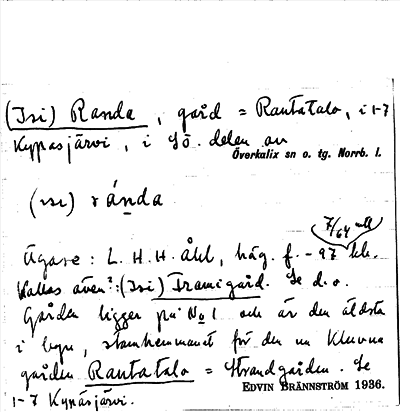 (Isi) Randa, gård = Rantatalo, i 1-7
Kypasjärvi, i Sö. delen av
Överkalix sn o. tg. Norrb. l.
(isi) ránda
7/64 mtl
Ägare: L. H. H. Åhl, häg. f. -97 kb.
Kallas även?: (Isi) Framigård. Se d. o.
Gården ligger på No 1 och är den äldsta
i byn, stamhemmanet för den nu kluvna
gården Rantatalo = Strandgården. Se
EDVIN BRÄNNSTRÖM 1936.
1-7 Kypäsjärvi.